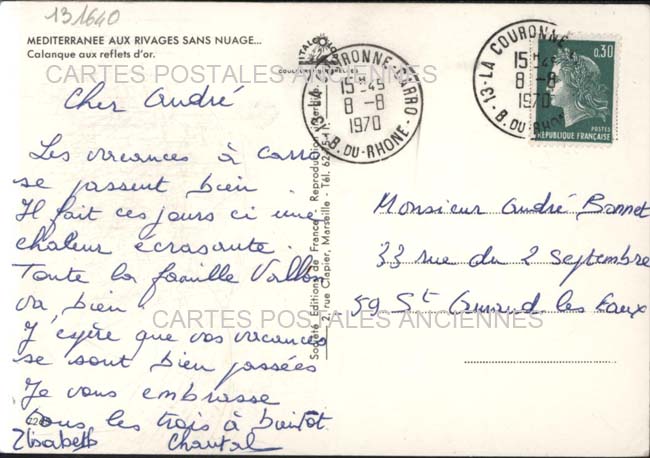 131640
MEDITERRANEE AUX RIVAGES SANS NUAGE...
Calanque aux reflets d'or.
CARTES POSTALES ANCIENNES
13-LA COURONNE-CARRO
15H45
8-8
1970
B. DU-RHONE
13-LA COURONNE
15H45
8-8
1970
B. DU-RHONE
0,30
POSTES
REPUBLIQUE FRANÇAISE
Cher André
Les vacances à Carro
se passent bien.
Il fait ces jours ci une
chaleur écrasante.
Toute la famille
va bien.
J'espère que vos vacances
se sont bien passées
Je vous embrasse
tous les trois à bientôt.
Elisabeth Chantal
Société Editions de France - Reproduction
2, rue Clapier, Marseille - Tél.
Monsieur André Bonnet
33 rue du 2 Septembre
59 St Amand les Eaux
CARTES POSTALES ANCIENNES